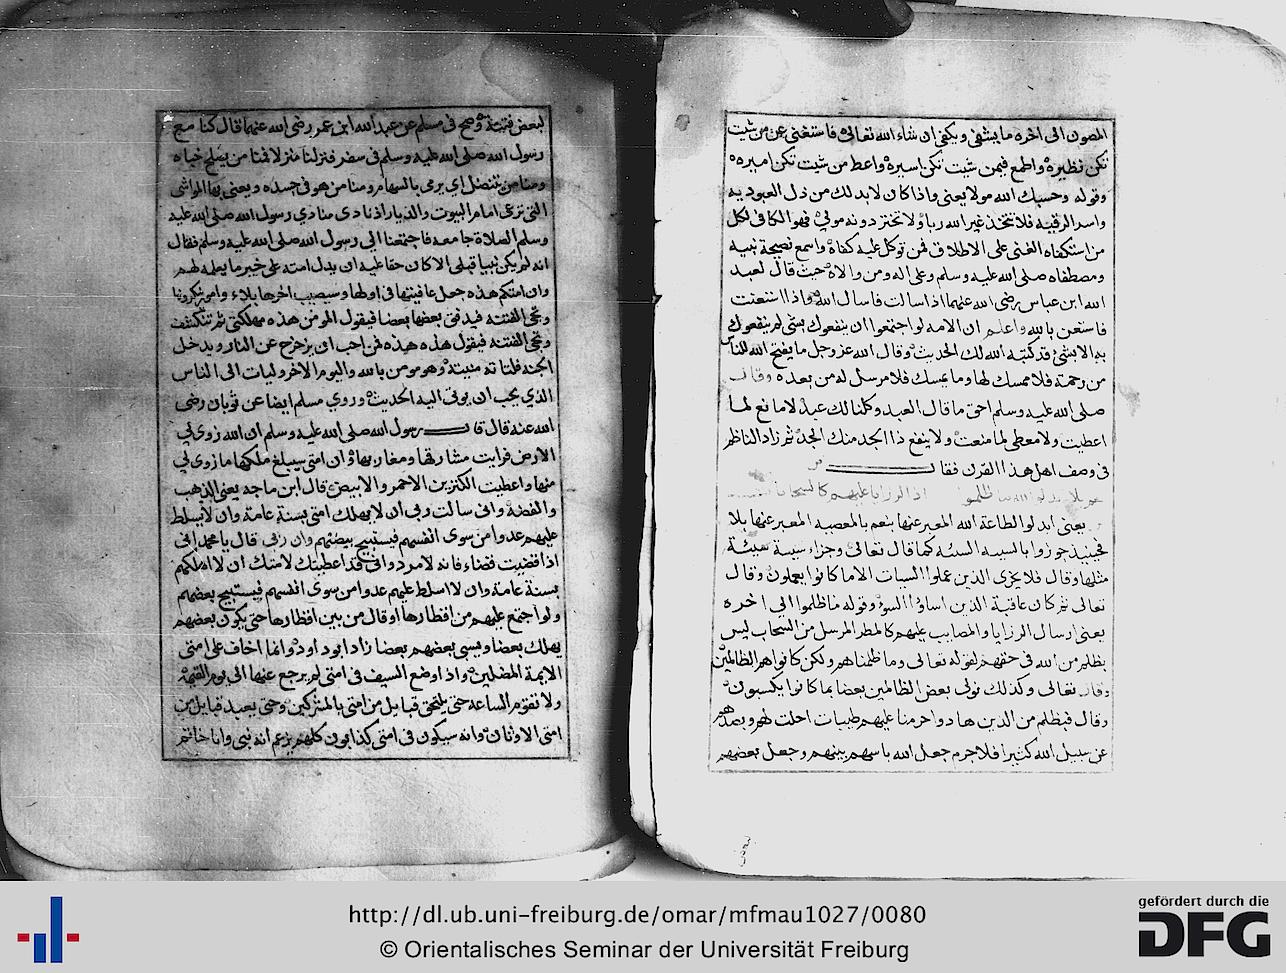 المصون الى اخره ما يشفي ويكفي ان شاء الله تعالى فاستغنى عن من شيت
تكن نظيره واطمع فيمن شيت تكن اسيره واعط من شيت تكن اميره
وقوله وحسبك الله مولا يعنى واذا كان لابد لك من ذل العبوديه
واسر الرقيه فلا تتخذ غير الله ربا ولا تختر دونه مولى فهو الكافى لكل
من استكفاه الغنى على الاطلاق فمن توكل عليه كفاه واسمع نصيحة نبيه
ومصطفاه صلى الله عليه وسلم وعلى اله ومن والاه حيث قال لعبد
الله ابن عباس رضى الله عنهما اذا سالت فاسال الله واذا استعنت
فاستعن بالله واعلم ان الامه لو اجتمعوا ان ينفعوك بشى لم ينفعوك
به الا بشى قد كتبه الله لك الحديث وقال الله عز وجل ما يفتح الله للناس
من رحمة فلا ممسك لها وما يمسك فلا مرسل له من بعده وقال
صلى الله عليه وسلم احق ما قال العبد وكلنا لك عبد لا مانع لما
اعطيت ولا معطى لما منعت ولا ينفع ذا الجد منك الجد ثم زاد الناظم
فى وصف اهل هذا القرن فقال
الرزايا عليهم كالسحاب
يعنى ابدلوا الطاعة الله المعبر عنها بنعم بالمعصيه المعبر عنها بلا
فحينيذ جوزوا بالسييه السيئه كما قال تعالى وجزاء سيية سيئة
مثلها وقال فلا يجزى الذين عملوا السيات الا ما كانوا يعملون وقال
تعالى ثم كان عاقبة الذين اساؤا السوء وقوله ما ظلموا الى اخره
يعنى ارسال الرزايا والمصايب عليهم كالمطر المرسل من السحاب ليس
بظلم من الله فى حقهم لقوله تعالى وما ظلمناهم ولكن كانوا هم الظالمين
وقال تعالى وكذلك نولى بعض الظالمين بعضا بما كانوا يكسبون
وقال فبظلم من الذين هادوا حرمنا عليهم طيبات احلت لهم وبصدهم
عن سبيل الله كثيرا فلا جرم جعل الله باسهم بينهم وجعل بعضهم
لبعض فتنة وصح فى مسلم عن عبد الله ابن عمر رضى الله عنهما قال كنا مع
رسول الله صلى الله عليه وسلم فى سفر فنزلنا منزلا فمنا من يصلح خباه
ومنا من ينتضل اي يرمى بالسهام ومنا من هو فى جسده ويعنى بها المواشى
التى ترعى امام البيوت والديار اذ نادى منادي رسول الله صلى الله عليه
وسلم الصلاة جامعه فاجتمعنا الى رسول الله صلى الله عليه وسلم فقال
انه لم يكن نبيا قبلى الا كان حقا عليه ان يدل امته على خير ما يعلمه لهم
وان امتكم هذه جعل عافيتها فى اولها وسيصيب اخرها بلاء وامور
وتجى الفتنه بعضها بعضا فيقول المومن هذه مهلكتى ثم تنكشف
وتجى الفتنه فيقول هذه هذه فمن احب ان يزحزح عن النار ويدخل
الجنه فلتاته منيته وهو مومن بالله واليوم الاخر وليات الى الناس
الذي يحب ان يوتى اليه الحديث وروي مسلم ايضا عن ثوبان رضى
الله عنه قال قال رسول الله صلى الله عليه وسلم ان الله زوى لي
الارض فرايت مشارقها ومغاربها وان امتى سيبلغ ملكها ما زوى لي
منها واعطيت الكنزين الاحمر والابيض قال ابن ماجه يعنى الذهب
والفضه وانى سالت ربى ان لا يهلك امتى بسنة عامة وان لا يسلط
عليهم عدوا من سوى انفسهم فيستبيح بيضتهم وان ربى قال يا محمد انى
اذا قضيت قضاء فانه لا مرد وانى قد اعطيتك لامتك ان لا اهلكهم
بسنة عامة وان لا اسلط عليهم عدوا من سوى انفسهم فيستبيح بعضهم
ولو اجتمع عليهم من اقطارها او قال من بين اقطارها حتى يكون بعضهم
يهلك بعضا ويسبى بعضهم بعضا زاد ابو داود وانما اخاف على امتى
الايمة المضلين واذا وضع السيف فى امتى لم يرجع عنها الى يوم القيمة
ولا تقوم الساعه حتى يلتحق قبايل من امتى بالمشركين وحتى يعبد قبايل من
امتى الاوثان وانه سيكون فى امتى كذابون كلهم يزعم انه نبى وانا خاتم
http://dl.ub.uni-freiburg.de/omar/mfmau1027/0080
© Orientalisches Seminar der Universität Freiburg
gefördert durch die
DFG